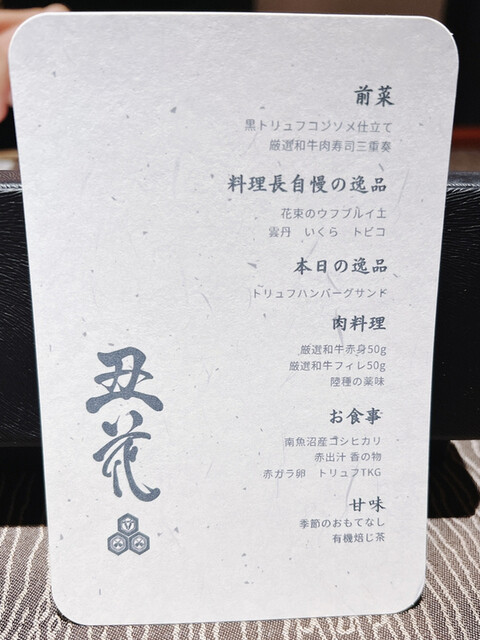 前菜
黒トリュフコンソメ仕立て
厳選和牛肉寿司三重奏
料理長自慢の逸品
花束のウフブルイユ
雲丹　いくら　トビコ
本日の逸品
トリュフハンバーグサンド
肉料理
厳選和牛赤身50g
厳選和牛フィレ50g
陸種の薬味
お食事
南魚沼産コシヒカリ
赤出汁 香の物
赤ガラ卵　トリュフTKG
甘味
季節のおもてなし
有機焙じ茶
丑花